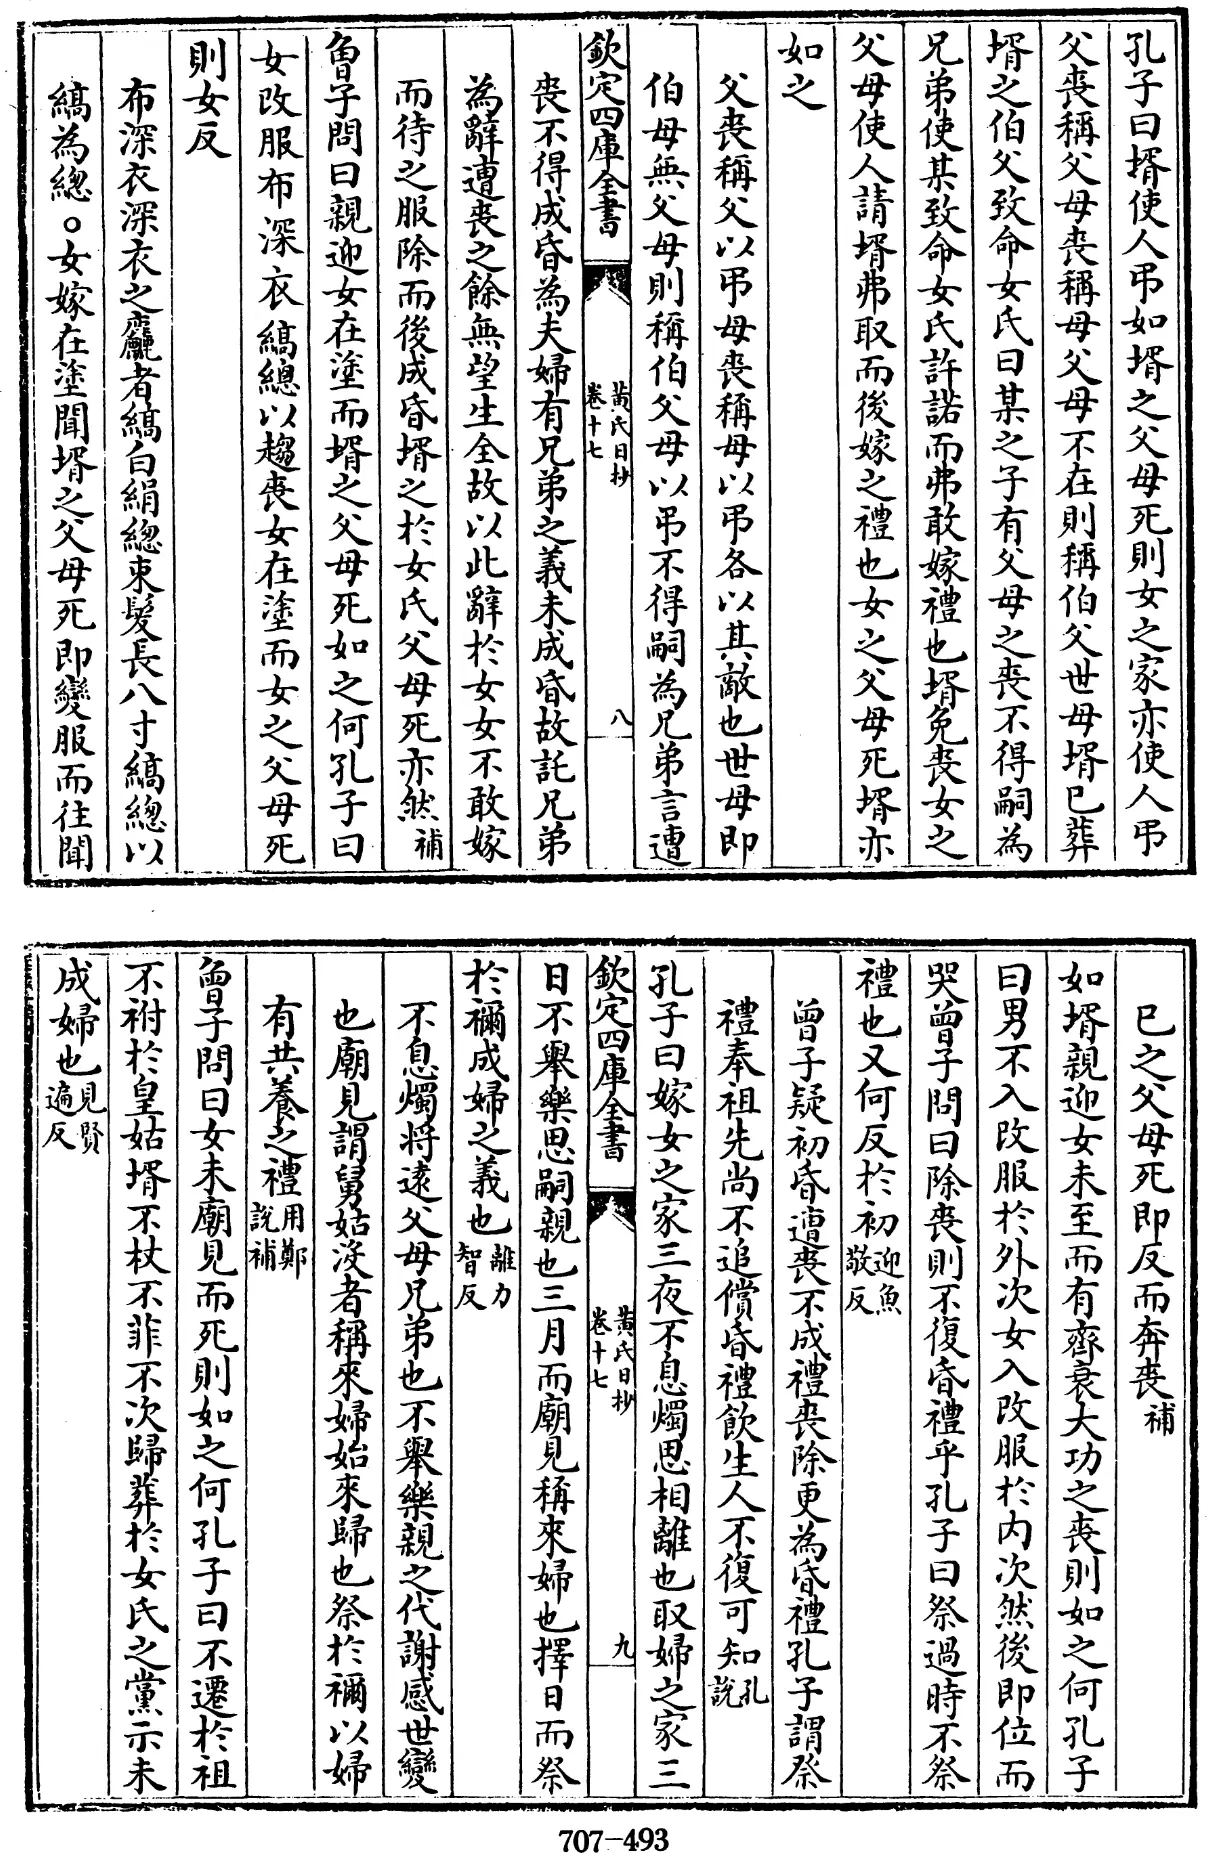 孔子曰壻使人弔如壻之父母死則女之家亦使人弔
父喪稱父母喪稱母父母不在則稱伯父世母壻已葬
壻之伯父致命女氏曰某之子有父母之喪不得嗣為
兄弟使某致命女氏許諾而弗敢嫁禮也壻免喪女之
父母使人請壻弗取而後嫁之禮也女之父母死壻亦
如之
父喪稱父以弔母喪稱母以弔各以其敵也世母即
伯母無父母則稱伯父母以弔不得嗣為兄弟言遭
欽定四庫全書
黄氏日抄
卷十七
八
喪不得成昏為夫婦有兄弟之義未成昏故託兄弟
為辭遭喪之餘無望生全故以此辭於女女不敢嫁
而待之服除而後成昏壻之於女氏父母死亦然補
曾子問曰親迎女在塗而壻之父母死如之何孔子曰
女改服布深衣縞總以趨喪女在塗而女之父母死
則女反
布深衣深衣之麤者縞白絹總束髮長八寸縞總以
縞為總○女嫁在塗聞壻之父母死即變服而往聞
已之父母死即反而奔喪補
如壻親迎女未至而有齊衰大功之喪則如之何孔子
曰男不入改服於外次女入改服於内次然後即位而
哭曾子問曰除喪則不復昏禮乎孔子曰祭過時不祭
禮也又何反於初迎魚敬反
曾子疑初昏遭喪不成禮喪除更為昏禮孔子謂祭
禮奉祖先尚不追償昏禮飲生人不復可知孔說
孔子曰嫁女之家三夜不息燭思相離也取婦之家三
欽定四庫全書
黄氏日抄
卷十七
九
日不舉樂思嗣親也三月而廟見稱來婦也擇日而祭
於禰成婦之義也離力智反
不息燭將遠父母兄弟也不舉樂親之代謝感世變
也廟見謂舅姑沒者稱來婦始來歸也祭於禰以婦
有共養之禮用鄭說補
曾子問曰女未廟見而死則如之何孔子曰不遷於祖
不祔於皇姑壻不杖不菲不次歸葬於女氏之黨示未
成婦也見賢遍反
707-493